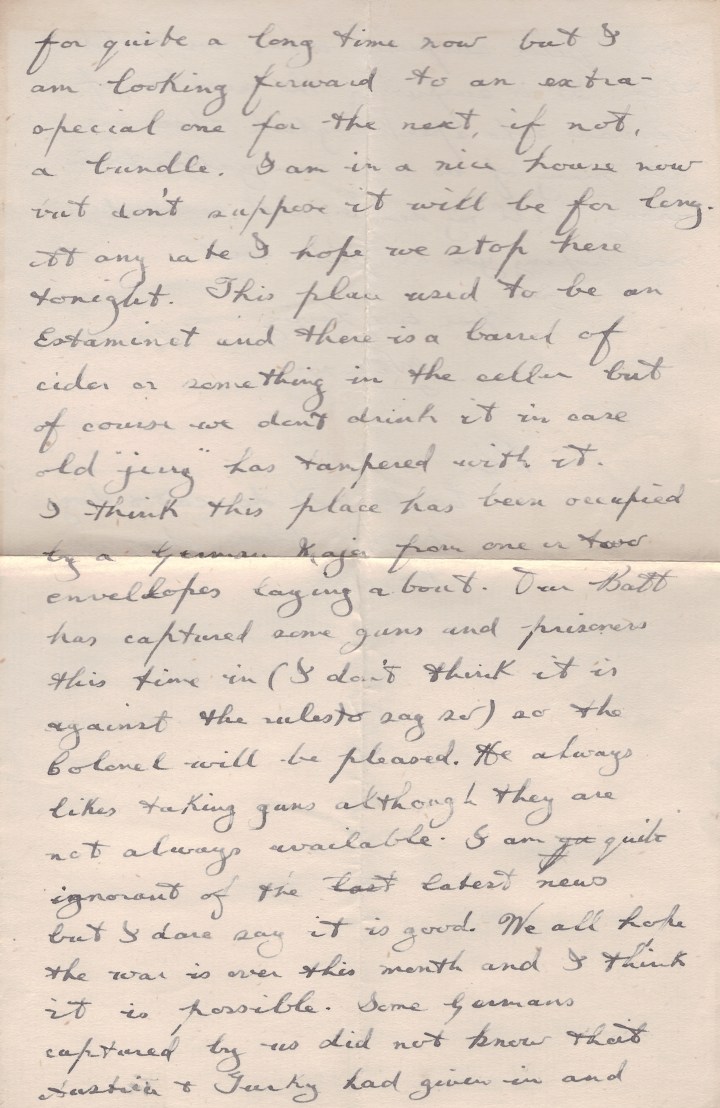 for quite a long time now but I
am looking forward to an extra-
special one for the next, if not,
a bundle. I am in a nice house now
but don't suppose it will be for long.
At any rate I hope we stop here
tonight. This place used to be an
Estaminet and there is a barrel of
cider or something in the cellar but
of course we don't drink it in case
old "jerry" has tampered with it.
I think this place has been occupied
by a German Major from one or two
envellopes laying about. Our Batt
has captured some guns and prisoners
this time in (I don't think it is
against the rules to say so) so the
Colonel will be pleased. He always
likes taking guns although they are
not always available. I am quite
ignorant of the last latest news
but I dare say it is good. We all hope
the war is over this month and I think
it is possible. Some Germans
captured by us did not know that
Austria & Turky had given in and